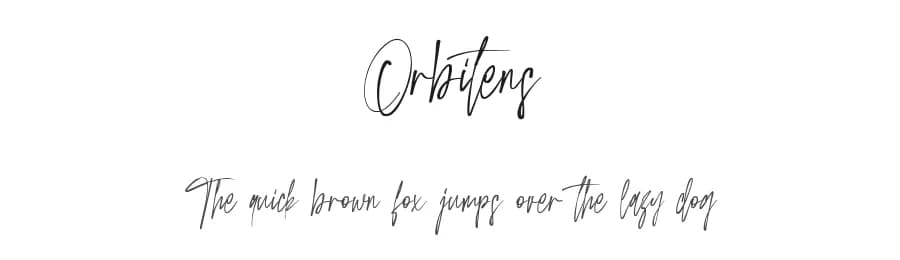 Orbitens
The quick brown fox jumps over the lazy dog